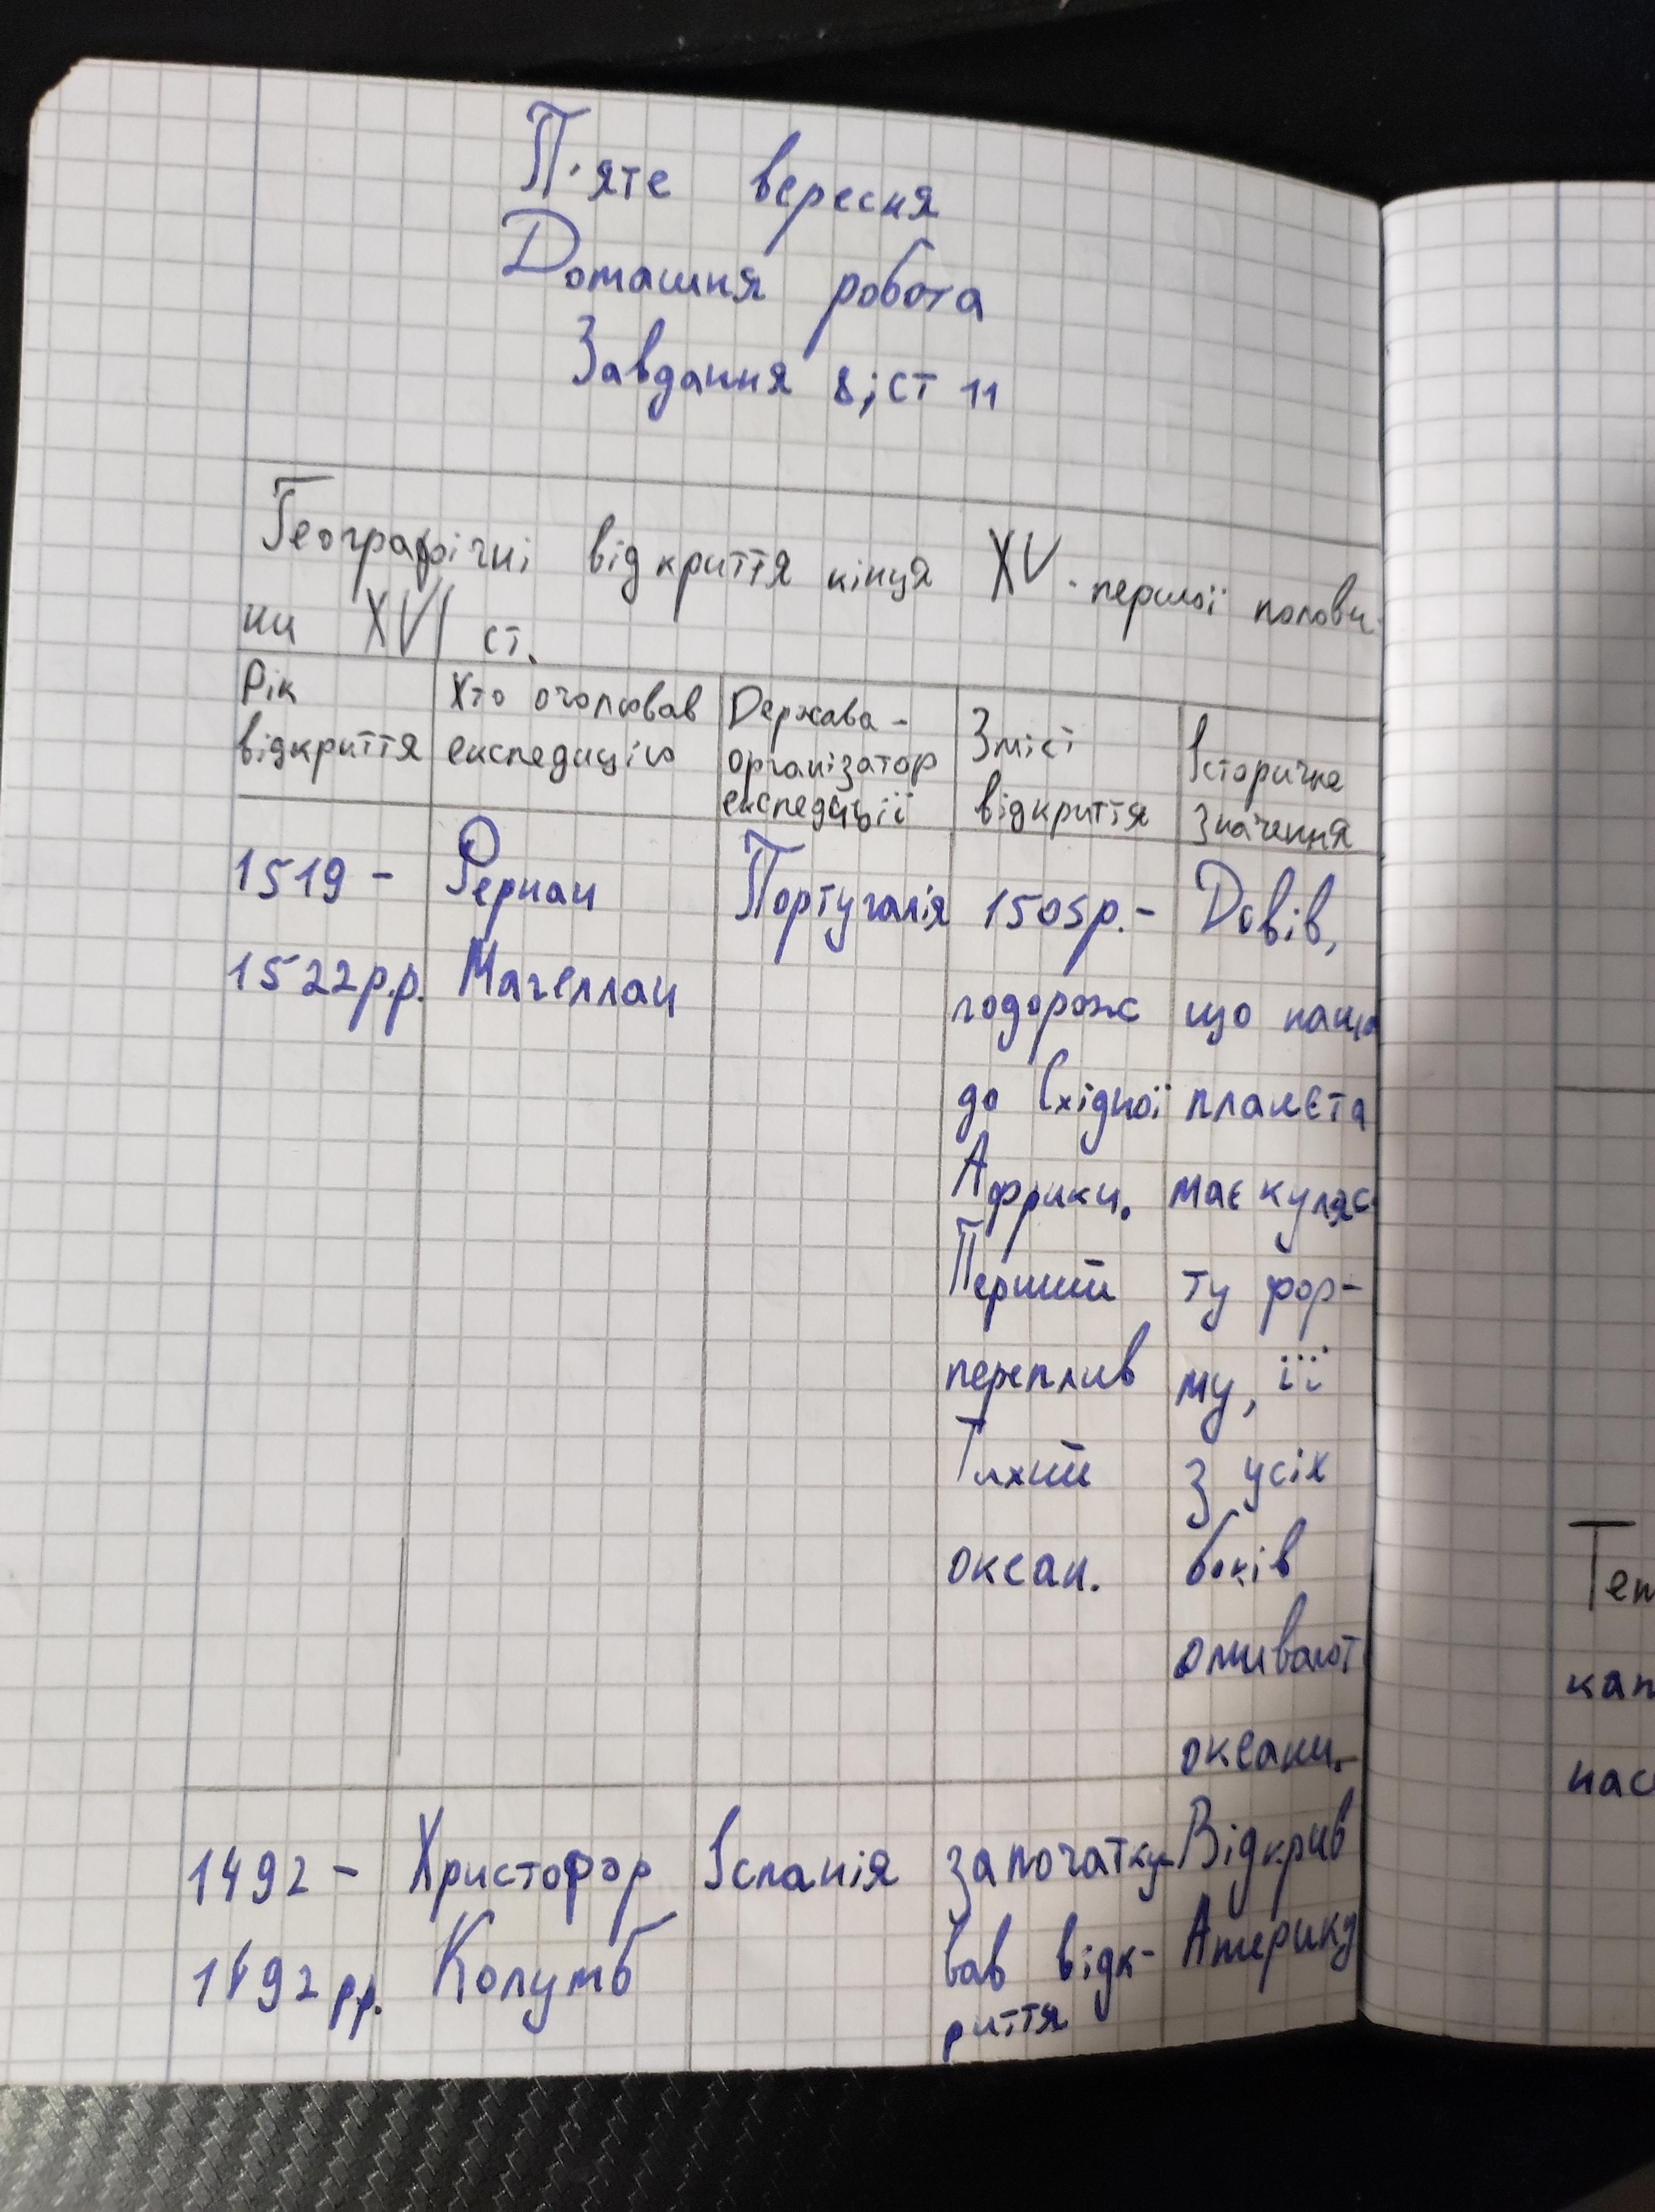 П'яте вересня
Домашня робота
Завдання 8; ст 11
Географічні відкриття кінця XV - першої полови-
ни XVI ст.
Рік
відкриття
Хто очолював
експедицію
Держава-
організатор
експедиції
Зміст
відкриття
Історичне
значення
1519 -
1522р.р.
Фернан
Магеллан
Португалія
1505р.-
подорож
до Східної
Африки.
Перший
переплив
Тихий
океан.
Довів,
що наша
планета
має куляс-
ту фор-
му, її
з усіх
боків
омивают
океани.
1492 -
1492 рр.
Христофор
Колумб
Іспанія
започатку-
вав відк-
риття
Відкрив
Америку
Тем
кап
нас